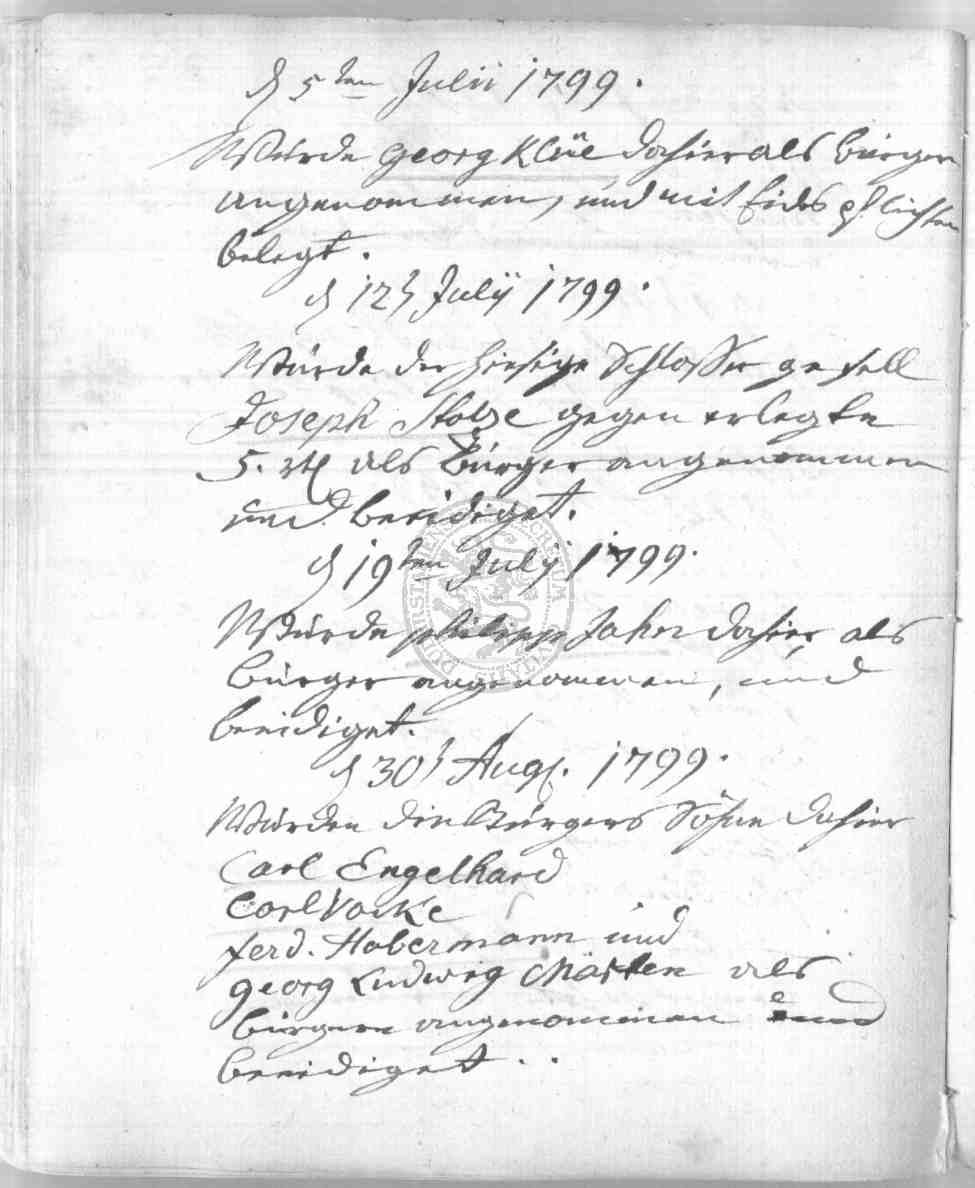 d 5ten Julii 1799.
Wurde Georg Klüe dahier als bürger
angenommen, und mit Eides pflichten
belegt.
d 12t July 1799.
Wurde der hiesige Schlosser gesell
Joseph Stolze gegen erlegte
5. rtl als Bürger angenommen
und beeidiget.
d 19ten July 1799.
Wurde philipp Jahn dahier als
bürger angenommen, und
beeidiget.
d 30t Aug. 1799.
Wurden die Bürgers Söhne dahier
Carl Engelhard
Carl Vocke
ferd. Habermann und
Georg Ludwig Märten als
bürgere angenommen und
beeidiget..